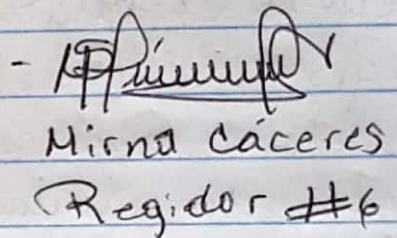 Mirna Cáceres
Regidor #6